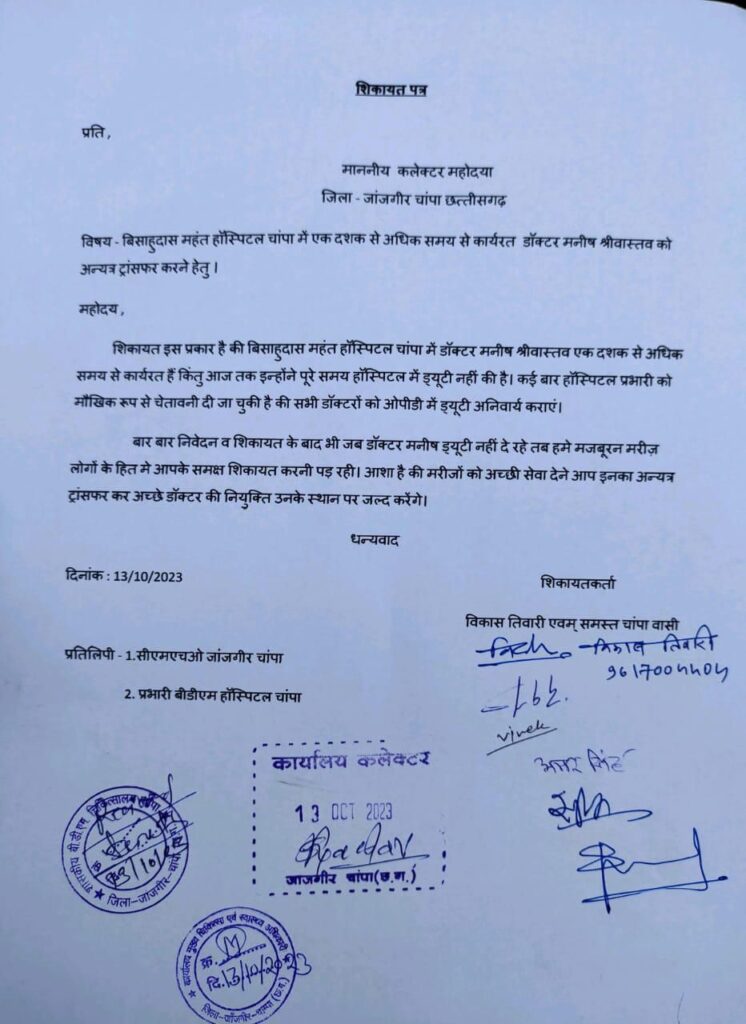 शिकायत पत्र
प्रति ,
माननीय कलेक्टर महोदया
जिला - जांजगीर चांपा छत्तीसगढ़
विषय - बिसाहुदास महंत हॉस्पिटल चांपा में एक दशक से अधिक समय से कार्यरत डॉक्टर मनीष श्रीवास्तव को
अन्यत्र ट्रांसफर करने हेतु ।
महोदय ,
शिकायत इस प्रकार है की बिसाहुदास महंत हॉस्पिटल चांपा में डॉक्टर मनीष श्रीवास्तव एक दशक से अधिक
समय से कार्यरत हैं किंतु आज तक इन्होंने पूरे समय हॉस्पिटल में ड्यूटी नहीं की है। कई बार हॉस्पिटल प्रभारी को
मौखिक रूप से चेतावनी दी जा चुकी है की सभी डॉक्टरों को ओपीडी में ड्यूटी अनिवार्य कराएं।
बार बार निवेदन व शिकायत के बाद भी जब डॉक्टर मनीष ड्यूटी नहीं दे रहे तब हमे मजबूरन मरीज़
लोगों के हित मे आपके समक्ष शिकायत करनी पड़ रही। आशा है की मरीजों को अच्छी सेवा देने आप इनका अन्यत्र
ट्रांसफर कर अच्छे डॉक्टर की नियुक्ति उनके स्थान पर जल्द करेंगे।
धन्यवाद
दिनांक : 13/10/2023
शिकायतकर्ता
विकास तिवारी एवम् समस्त चांपा वासी
विकास तिवारी
प्रतिलिपी - 1.सीएमएचओ जांजगीर चांपा
2. प्रभारी बीडीएम हॉस्पिटल चांपा
vivek
कार्यालय कलेक्टर
13 OCT 2023
जांजगीर चांपा(छ.ग.)
शासकीय बी.डी.एम. चिकित्सालय चांपा
जिला-जांजगीर-चांपा
कार्यालय मुख्य चिकित्सा एवं स्वास्थ्य अधिकारी
क्र.
दि. 13/10/2023
जिला-जांजगीर-चाम्पा (छ.ग.)